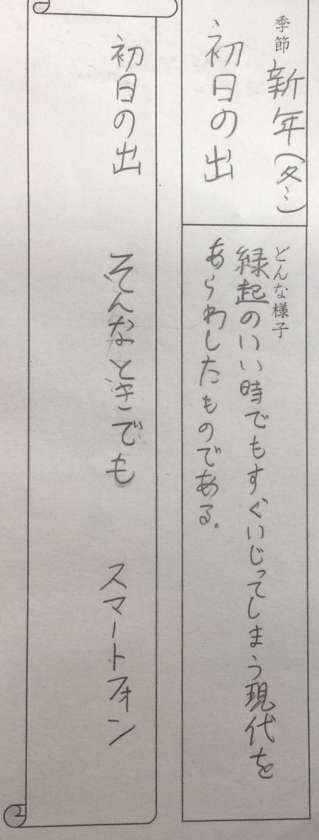 季節
新年(冬)
初日の出
どんな様子
縁起のいい時でもすぐいじってしまう現代を
あらわしたものである。
初日の出　そんなときでも　スマートフォン